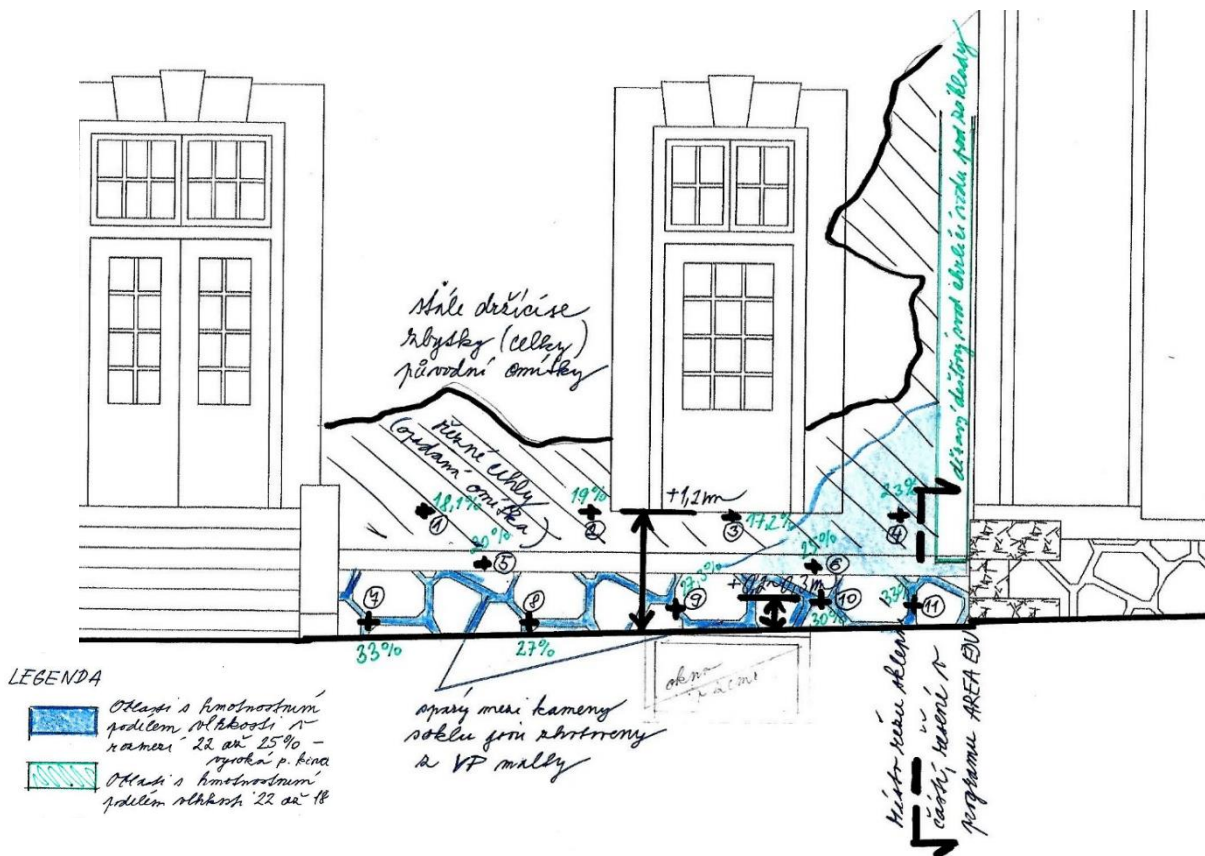 stále držící se
zbytky (celky)
původní omítky
řezné cihly
(opadaná omítka)
děravý dešťový svod chrlící vodu pod základy
18,1%
1
19%
2
+1,2m
3
17,2%
23%
4
20%
5
25%
6
7
33%
8
27%
27,3%
9
+0,2~0,3m
10
30%
33%
11
okno
spáry mezi kameny
soklu jsou zhotoveny
z VP malty
Místo řezu sklepní
části, řešené v
programu AREA EDU
LEGENDA
Oblasti s hmotnostním
podílem vlhkosti v
rozmezí 22 až 25% –
vysoká p.
Oblasti s hmotnostním
podílem vlhkosti 22 až 18